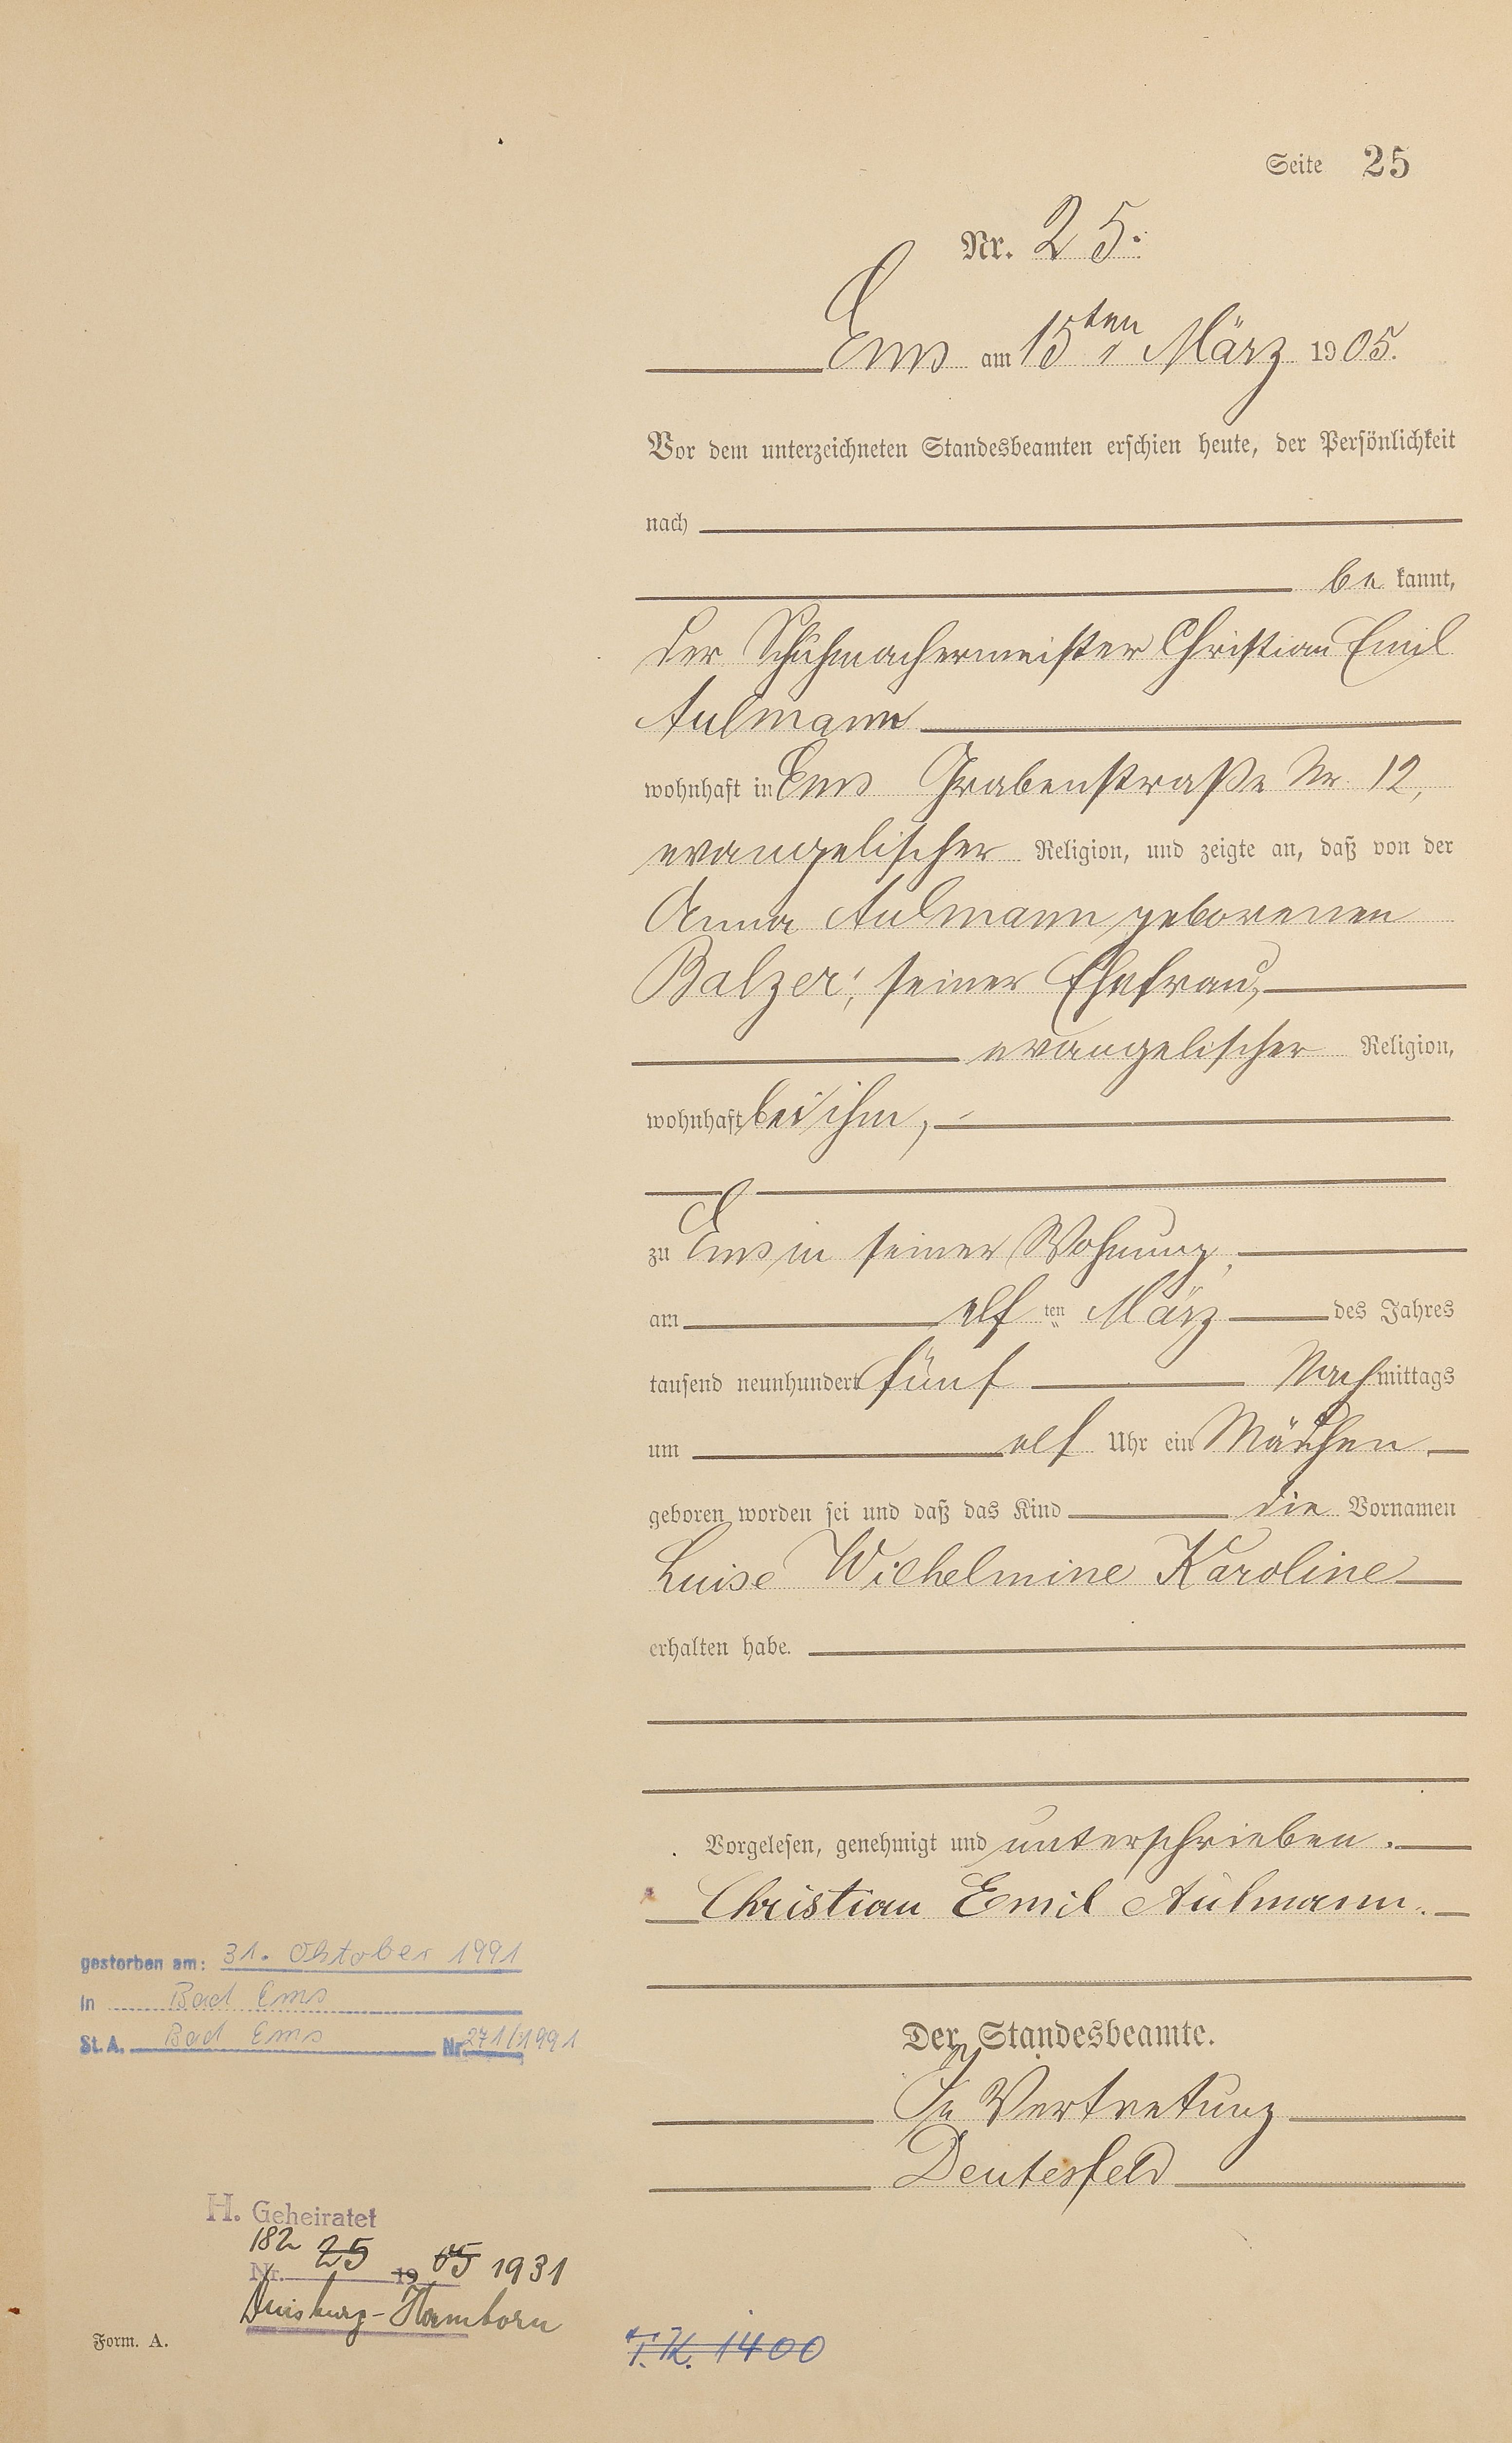 Seite 25
Nr. 25.
Ems am 15ten März 1905.
Vor dem unterzeichneten Standesbeamten erschien heute, der Persönlichkeit
nach
bekannt,
der Schuhmachermeister Christian Emil
Aulmann
wohnhaft in Ems Grabenstraße Nr. 12,
evangelischer Religion, und zeigte an, daß von der
Anna Aulmann geborenen
Balzer, seiner Ehefrau,
evangelischer Religion,
wohnhaft bei ihm,
zu Ems in seiner Wohnung,
am elften März des Jahres
tausend neunhundert fünf Nachmittags
um elf Uhr ein Mädchen
geboren worden sei und daß das Kind die Vornamen
Luise Wilhelmine Karoline
erhalten habe.
Vorgelesen, genehmigt und unterschrieben.
Christian Emil Aulmann.
gestorben am: 31. Oktober 1991
in Bad Ems
St. A. Bad Ems Nr. 271/1991
Der Standesbeamte.
In Vertretung
Deutesfeld
H. Geheiratet
182 25
Nr. 19 05 1931
Duisburg-Hamborn
Form. A.
T.K. 1400